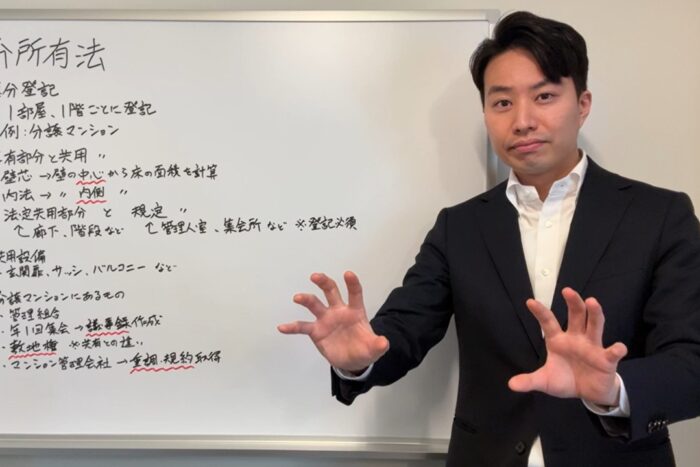 所有法
分登記
1部屋、1階ごとに登記
例:分譲マンション
有部分と共用 〃
壁芯→壁の中心から床の面積を計算
内法→〃 内側 〃
法定共用部分 と 規定 〃
↑廊下、階段など ↑管理人室、集会所など ※登記必須
用設備
玄関扉、サッシ、バルコニー など
譲マンションにあるもの
・管理組合
・年1回集会→議事録作成
・敷地権 ※共有との違い
・マンション管理会社→重調、規約取得